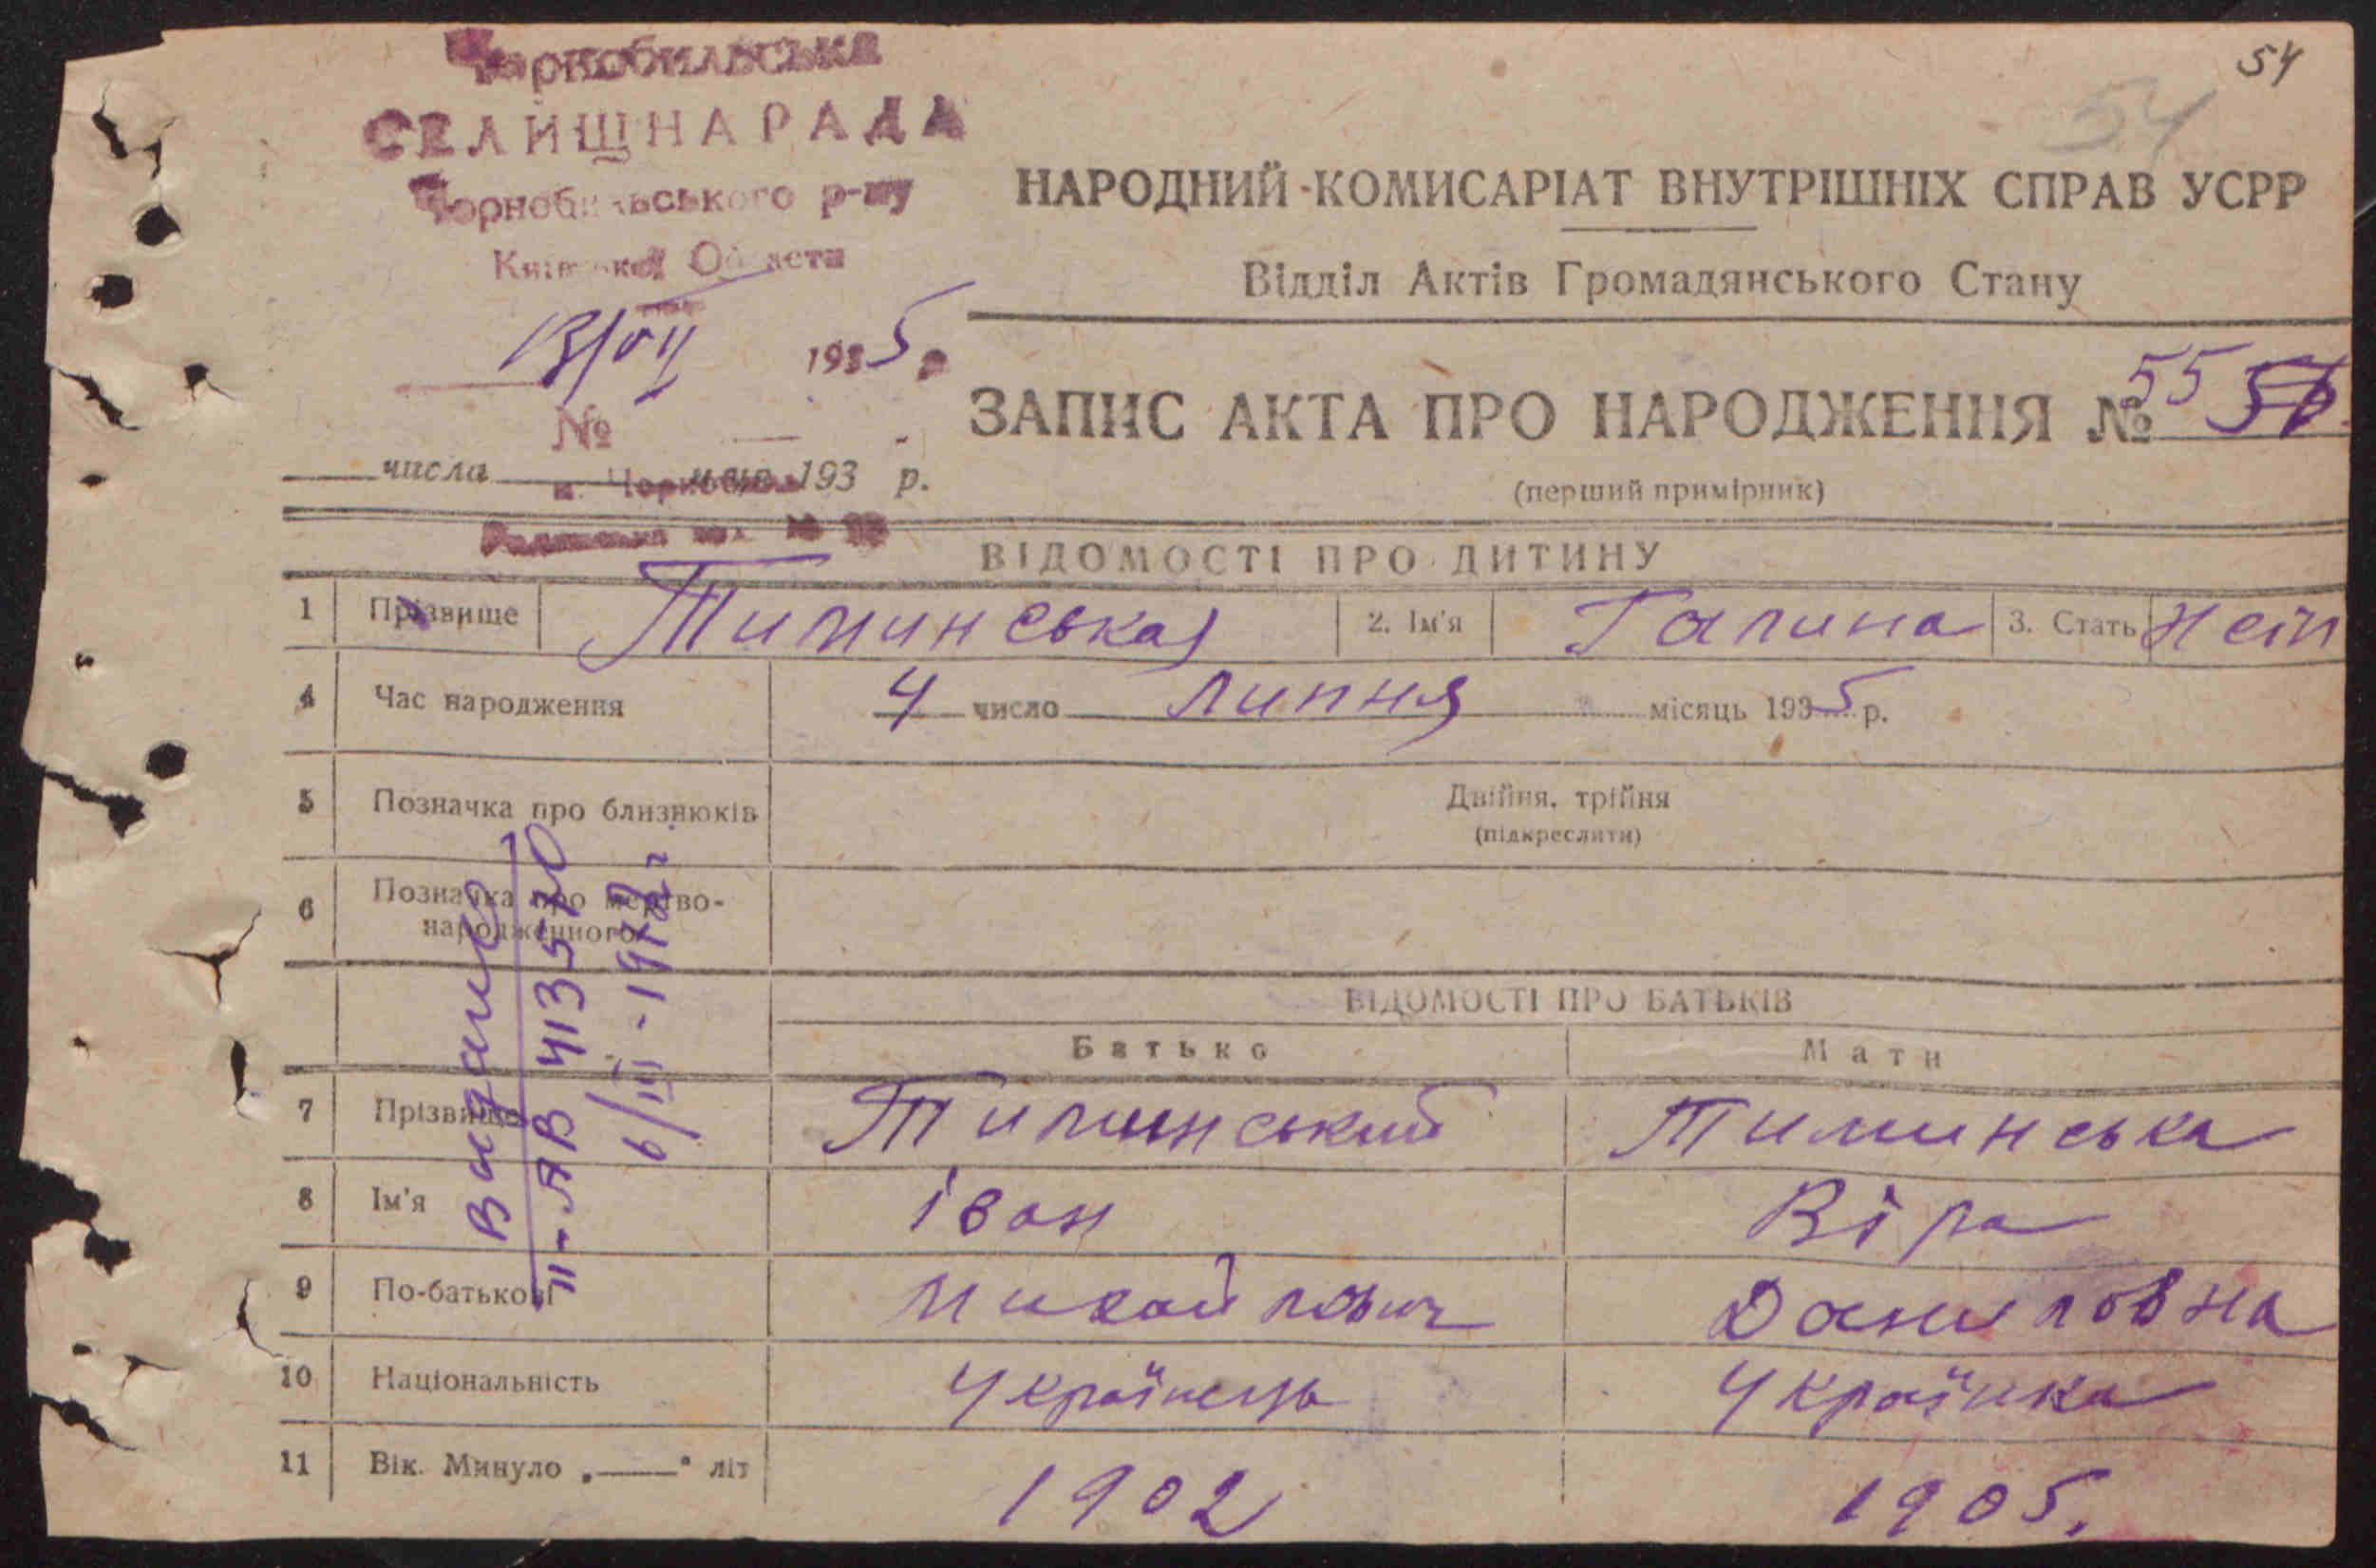 54
54
Чорнобильська
СЕЛИЩНАРАДА
Чорнобильського р-ну
Київської Області
13/VII 1935 р
№
числа м-ця 193 р.
м. Чорнобиль
НАРОДНИЙ КОМИСАРІАТ ВНУТРІШНІХ СПРАВ УСРР
Відділ Актів Громадянського Стану
ЗАПИС АКТА ПРО НАРОДЖЕННЯ № 55
(перший примірник)
ВІДОМОСТІ ПРО ДИТИНУ
1 Прізвище Тиминська 2. Ім'я Галина 3. Стать
4 Час народження 4 число липня місяць 1935 р.
5 Позначка про близнюків Двійня, трійня
(підкреслити)
6 Позначка про мертво-
народженного
ВІДОМОСТІ ПРО БАТЬКІВ
Батько Мати
7 Прізвище Тиминський Тиминська
8 Ім'я Іван Віра
9 По-батькові Михайлович Даниловна
10 Національність Українець Українка
11 Вік. Минуло „——" літ 1902 1905.
Видано
II-ЯВ 413570
6/III-1972г.